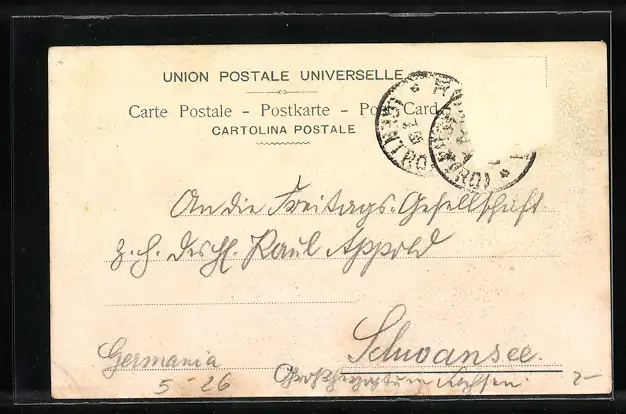 UNION POSTALE UNIVERSELLE
Carte Postale – Postkarte – Post Card
CARTOLINA POSTALE
An die Freitags-Gesellschaft
z. H. des H. Raul Appold
Schwansee.
Germania
5-26
2-